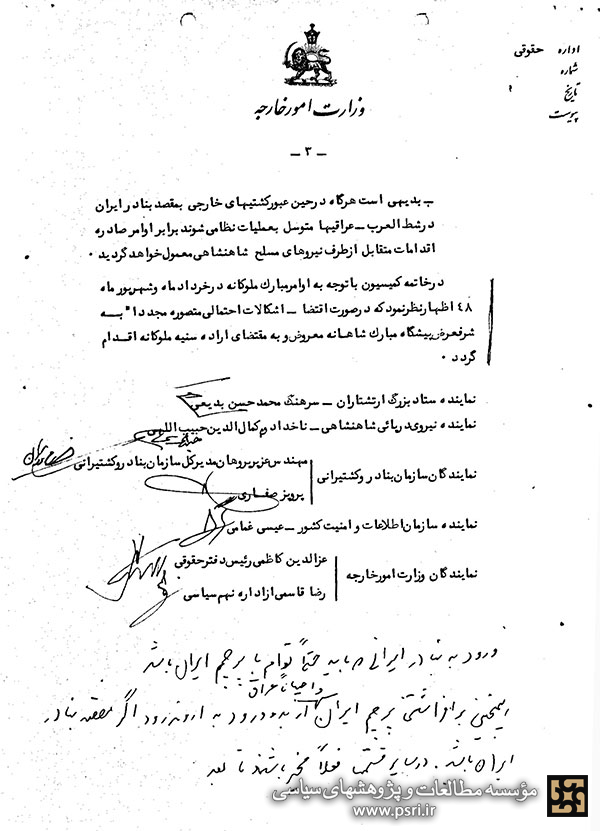 اداره حقوقی
شماره
تاریخ
پیوست
وزارت امور خارجه
ـ ۳ ـ
ـ بدیهی است هرگاه درحین عبور کشتیهای خارجی بمقصد بنادر ایران
درشط العرب ـ عراقیها متوسل بعملیات نظامی شوند برابر اوامر صادره
اقدامات متقابل ازطرف نیروهای مسلح شاهنشاهی معمول خواهد گردید ۰
درخاتمه کمیسیون با توجه به اوامر مبارک ملوکانه درخرداد ماه وشهریور ماه
٤٨ اظهار نظر نمود که درصورت اقتضا ـ اشکالات احتمالی متصوره مجددا" به
شرفعرض پیشگاه مبارک شاهانه معروض و به مقتضای اراده سنیه ملوکانه اقدام
گردد ۰
نماینده ستاد بزرگ ارتشتاران ـ سرهنگ محمد حسن بدیعی
نماینده نیروی دریائی شاهنشاهی ـ ناخدا دوم کمال الدین حبیب اللهی
نمایندگان سازمان بنادر وکشتیرانی
مهندس عزیز بروهان مدیرکل سازمان بنادر وکشتیرانی
پرویز صفاری
نماینده سازمان اطلاعات و امنیت کشور ـ عیسی غمامی
نمایندگان وزارت امور خارجه
عزالدین کاظمی رئیس دفتر حقوقی
رضا قاسمی از اداره نهم سیاسی
ورود به بنادر ایرانی باید حتماً توأم با پرچم ایران باشد
و احیاناً عراق
همچنین برافراشتن پرچم ایران از بدو ورود به اروندرود اگر مقصد بنادر
ایران باشد. در سایر قسمت فعلاً مخیر باشند تا بعد
مؤسسه مطالعات و پژوهشهای سیاسی
www.psri.ir